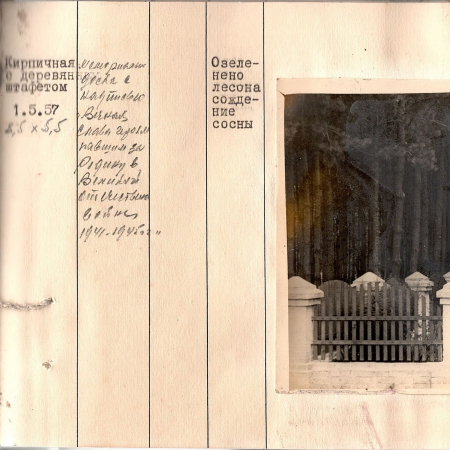 Кирпичная
с деревян
штафетом
1.5.57
5,5 x 5,5
мемориальн
доска с
надписью
Вечная
слава героям
павшим за
Родину в
Великой
отечествен
войне
1941-1945г."
Озеле-
нено
лесона
сожде-
ние
сосны